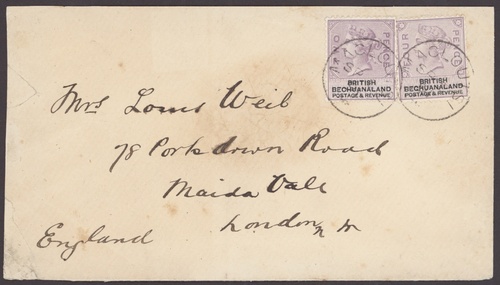 TWO PENCE
FOUR PENCE
BRITISH
BECHUANALAND
POSTAGE & REVENUE
BRITISH
BECHUANALAND
POSTAGE & REVENUE
Mrs Louis Weil
78 Porksdown Road
Maida Vale
London N W
England